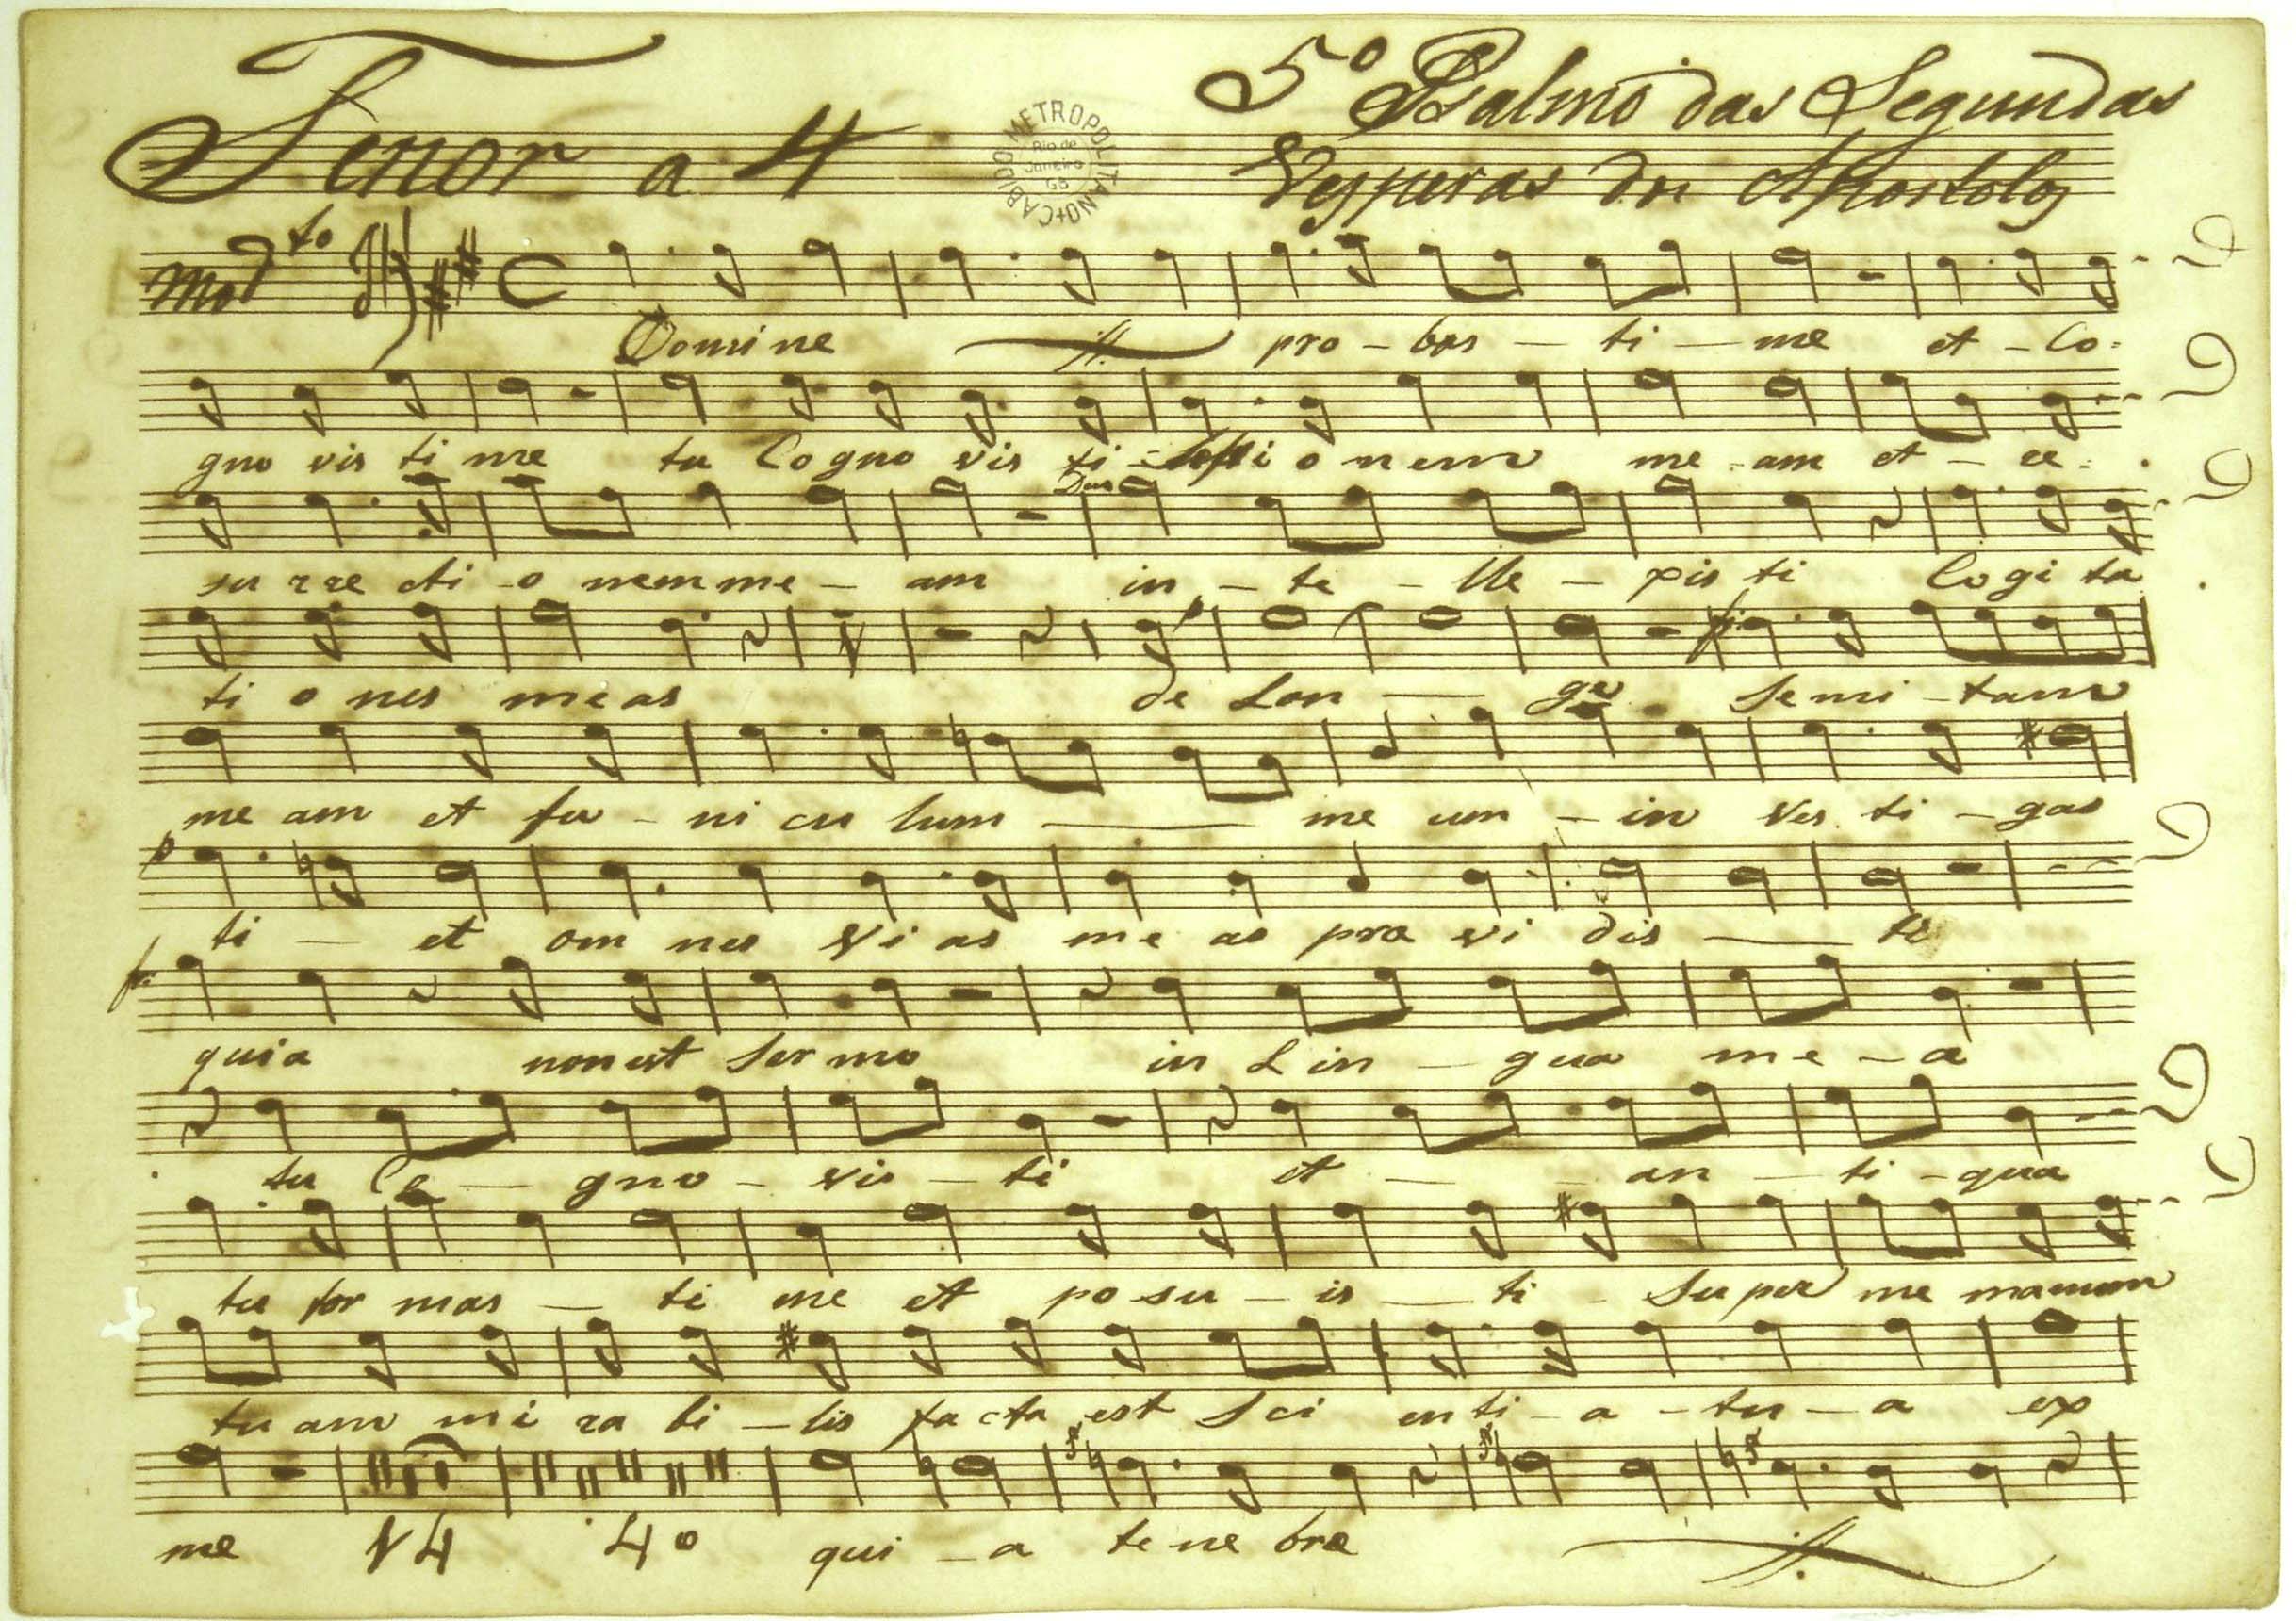 5º Psalmo das Segundas
Tenor a 4
Vesperas dos Apostolos
CABIDO METROPOLITANO
Rio de
Janeiro
GB
Modto
Domine pro - bas - ti - me et - Co
gno vis ti me tu Cogno vis ti o nem me - am et - re
Duo
su rre cti - o nem me - am in - te - lle - xis ti Cogi ta
ti o nes meas de Lon - ge Semi - tam
me am et fu - ni cu lum me um - in ves ti - gas
p
ti - et om nes vi as me as præ vi dis - ti
f
quia non est Sermo in Lin - gua me - a
tu Co - gno - vis - ti et - an - ti - qua
tu for mas - ti me et posu - is - ti - Super me manum
tu am mi ra bi - lis facta est Sci enti - a - tu - a ex
me 14 40 qui - a tene bræ